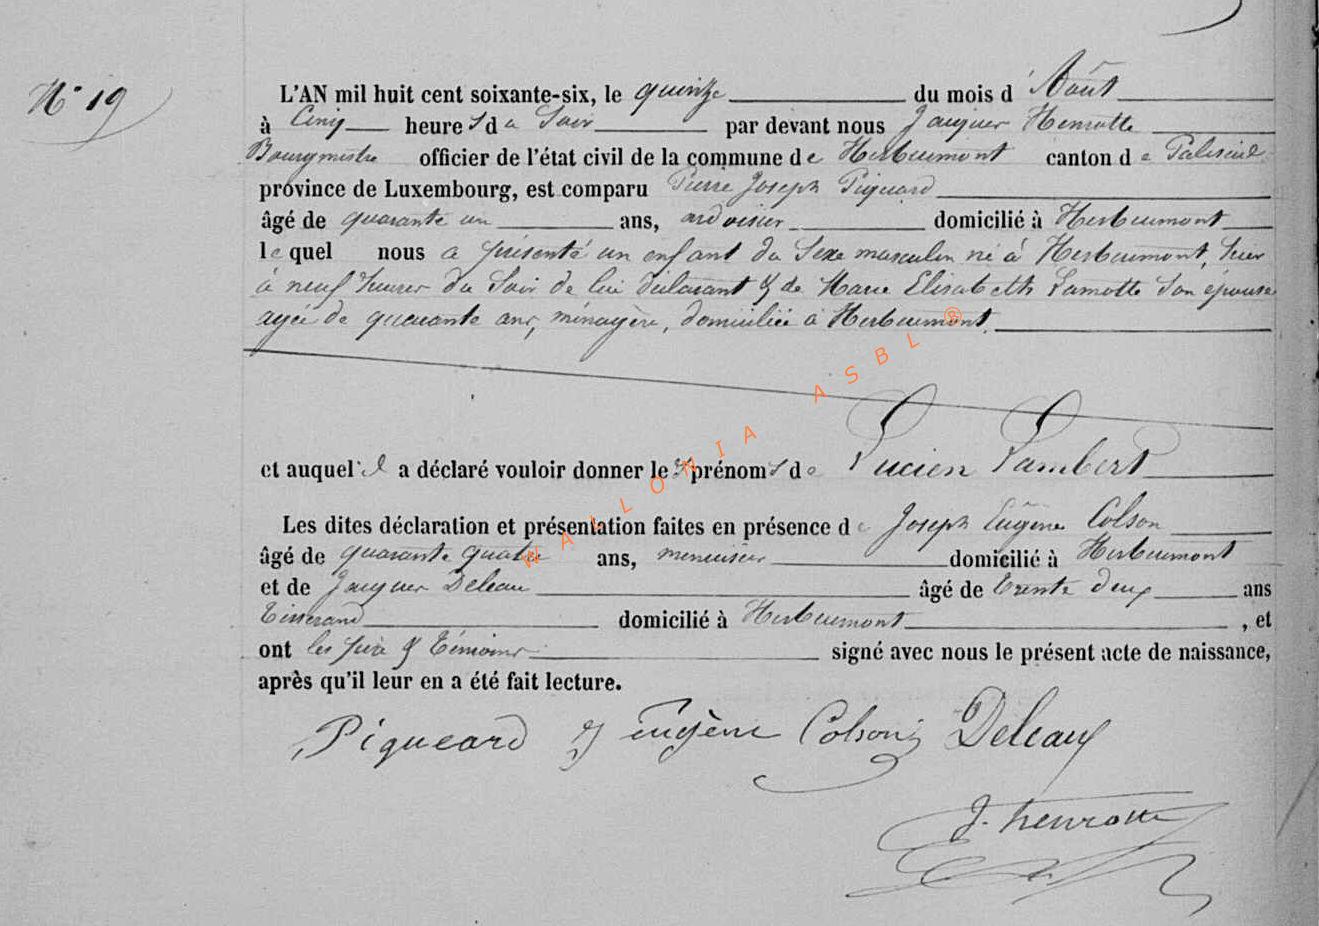 N° 19
L'AN mil huit cent soixante-six, le quinze du mois d'Août
à Cinq heures du Soir par devant nous Jacques Henrotte
Bourgmestre officier de l'état civil de la commune de Herbeumont canton de Paliseul
province de Luxembourg, est comparu Pierre Joseph Piqueard
âgé de quarante un ans, ardoisier domicilié à Herbeumont
lequel nous a présenté un enfant du Sexe masculin né à Herbeumont, hier
à neuf heures du Soir de lui déclarant & de Marie Elisabeth Lamotte Son épouse
agée de quarante ans, ménagère, domiciliée à Herbeumont.
et auquel il a déclaré vouloir donner les prénoms de Lucien Lambert
Les dites déclaration et présentation faites en présence de Joseph Eugène Colson
âgé de quarante quatre ans, menuisier domicilié à Herbeumont
et de Jacques Deleau âgé de trente deux ans
Tisserand domicilié à Herbeumont, et
ont les père & témoins signé avec nous le présent acte de naissance,
après qu'il leur en a été fait lecture.
Piqueard Eugène Colson Deleau
J. henrotte
WALLONIA ASBL ®